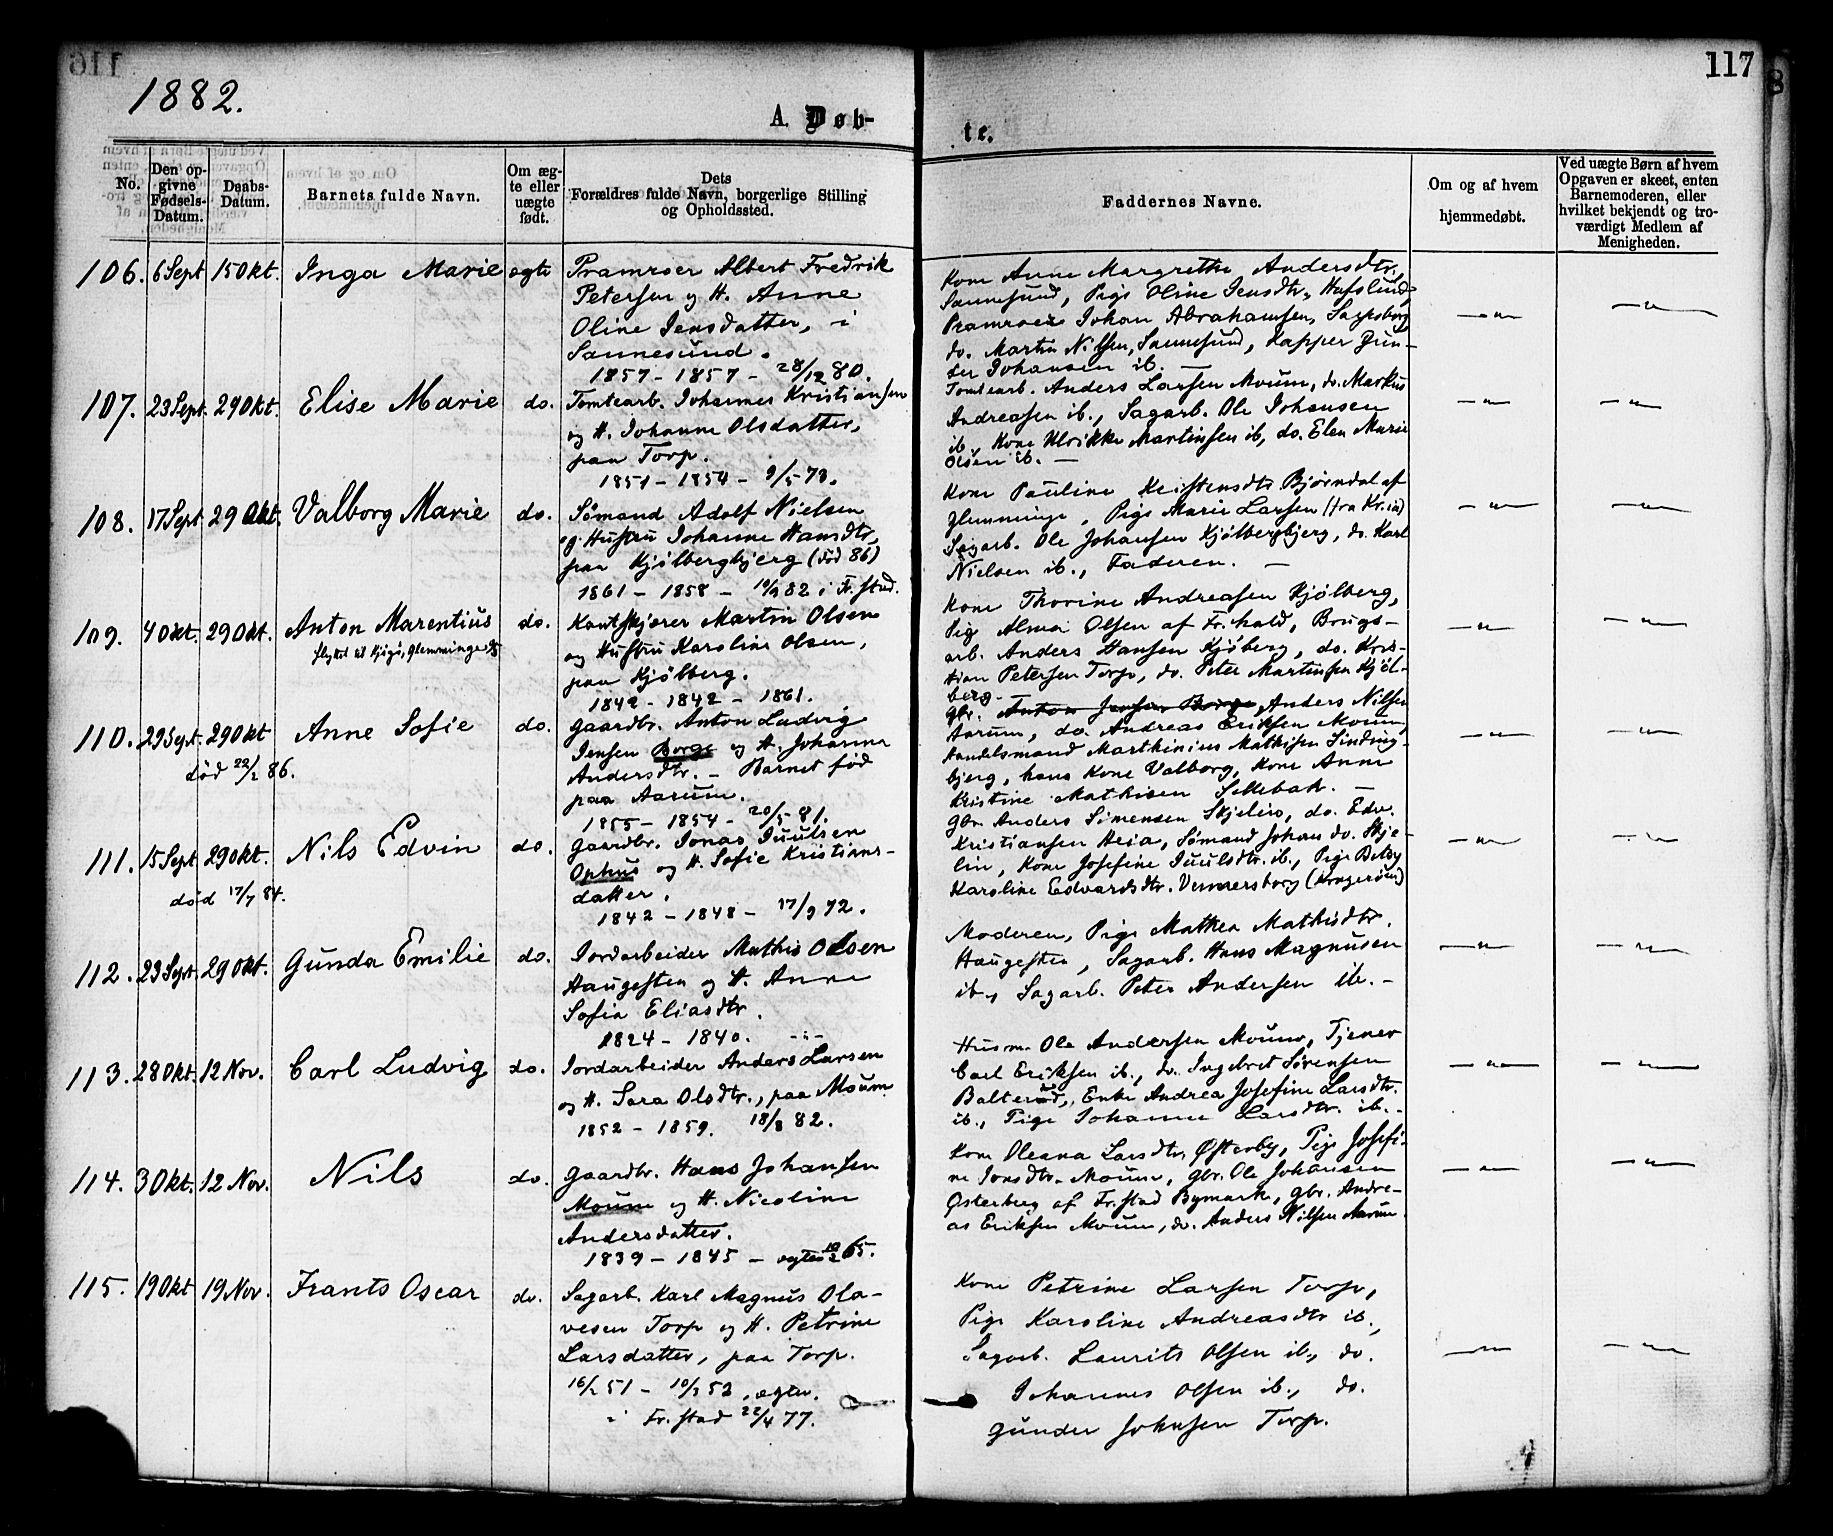 116
1882.
117
8
A. Døb-
te.
No.
Den op-
givne
Fødsels-
Datum.
Daabs-
Datum.
Barnets fulde Navn.
Om æg-
te eller
uægte
født.
Dets
Forældres fulde Navn, borgerlige Stilling
og Opholdssted.
Faddernes Navne.
Om og af hvem
hjemmedøbt.
Ved uægte Børn af hvem
Opgaven er skeet, enten
Barnemoderen, eller
hvilket bekjendt og tro-
værdigt Medlem af
Menigheden.
106. 6 Sept 15 Okt. Inga Marie ægte
Pramroer Albert Fredrik
Petersen og H. Anne
Oline Jensdatter, i
Sannesund.
1857 - 1857 - 28/12 80.
Kone Anne Margrethe Andersdtr.
Sannesund, Pige Oline Jensdtr. Hafslund,
Pramroer Johan Abrahamsen, Sarpsborg
do. Martin Nilsen, Sannesund, Kapper Gun-
der Johansen ib. —
107. 23 Sept. 29 Okt. Elise Marie do.
Tomtearb. Johannes Kristiansen
og H. Johanne Olsdatter,
paa Torp.
1851 - 1854 - 9/5 78.
Tomtearb. Anders Larsen Moum, do. Markus
Andreasen ib., Sagarb. Ole Johansen
ib., Kone Ulrikke Martinsen ib, do. Elen Marie
Olsen ib. —
108. 17 Sept 29 Okt. Valborg Marie do.
Sømand Adolf Nielsen
og Hustru Johanne Hansdtr,
paa Kjølbergbjerg (død 86)
1861 - 1858 - 10/9 82 i Fr.stad.
Kone Pauline Kristensdtr Bjørndal af
Glemminge, Pige Marie Larsen (fra Kr.ia)
Sagarb. Ole Johansen Kjølbergbjerg, do. Karl
Nielsen ib., Faderen. —
109. 4 Okt. 29 Okt. Anton Marentius do.
flyttet til Kjøge, Glemminge
Kantskjærer Martin Olsen
og Hustru Karoline Olsen,
paa Kjølberg.
1842 - 1842 - 1861.
Kone Thorine Andreasen Kjølberg,
Pige Alma Olsen af Fr.hald, Brugs-
arb. Anders Hansen Kjøberg, do. Kris-
tian Petersen Torp, do. Peter Martinsen Kjøl-
berg.
110. 29 Sept. 29 Okt Anne Sofie do.
død 22/2 86.
Gaardbr. Anton Ludvig
Jensen Borge og H. Johanne
Andersdtr. - Barnet fød
paa Aarum.
1855 - 1854 - 20/5 81.
Gbr. Anton Jensen Borge, Anders Nilsen
Aarum, do. Andreas Eriksen Moum,
Handelsmand Marthinius Mathisen Sinding-
bjerg, hans Kone Valborg, Kone Anne
Kristine Mathisen Sellebak. —
111. 15 Sept 29 Okt. Nils Edvin do.
død 17/7 84.
Gaardbr. Jonas Juulsen
Ophus og H. Sofie Kristians-
datter.
1842 - 1848 - 17/9 72.
Gbr. Anders Simensen Skjelin, do. Edv.
Kristiansen Heia, Sømand Johan do. Skje-
lin, Kone Josefine Juulsdtr. ib., Pige Betsy
Karoline Edvardsdtr. Vennersborg (Kragerøen)
112. 23 Sept. 29 Okt. Gunda Emilie do.
Jordarbeider Mathis Olsen
Haugesten og H. Anne
Sofia Eliasdtr.
1824 - 1840. -
Moderen, Pige Mathea Mathisdtr.
Haugesten, Sagarb. Hans Magnusen
ib., Sagarb. Peter Andersen ib. -
113. 28 Okt. 12 Nov. Carl Ludvig do.
Jordarbeider Anders Larsen
og H. Sara Olsdtr., paa Moum
1852 - 1859. 18/8 82.
Husm. Ole Andersen Moum, Tjener
Carl Eriksen ib., do. Ingebret Sørensen
Balterud, Enke Andrea Josefine Larsdtr.
ib., Pige Johanne Larsdtr. ib. -
114. 3 Okt. 12 Nov. Nils do.
Gaardbr. Hans Johansen
Moum og H. Nicoline
Andersdatter.
1839 - 1845 - ægtev 65.
Kone Oleana Larsdtr. Østerby, Pige Josefi-
ne Jonsdtr. Moum, Gbr. Ole Johansen
Østerberg af Fr.stad Bymark, Gbr. Andre-
as Eriksen Moum, do. Anders Nilsen Aarum.
115. 19 Okt 19 Nov. Frants Oscar do.
Sagarb. Karl Magnus Ola-
vesen Torp og H. Petrine
Larsdatter, paa Torp.
16/2 51 - 10/3 52, ægtev.
i Fr.stad 22/4 77.
Kone Petrine Larsen Torp,
Pige Karoline Andreasdtr ib.,
Sagarb. Laurits Olsen ib., do.
Johannes Olsen ib., do.
Gunder Johnsen Torp.